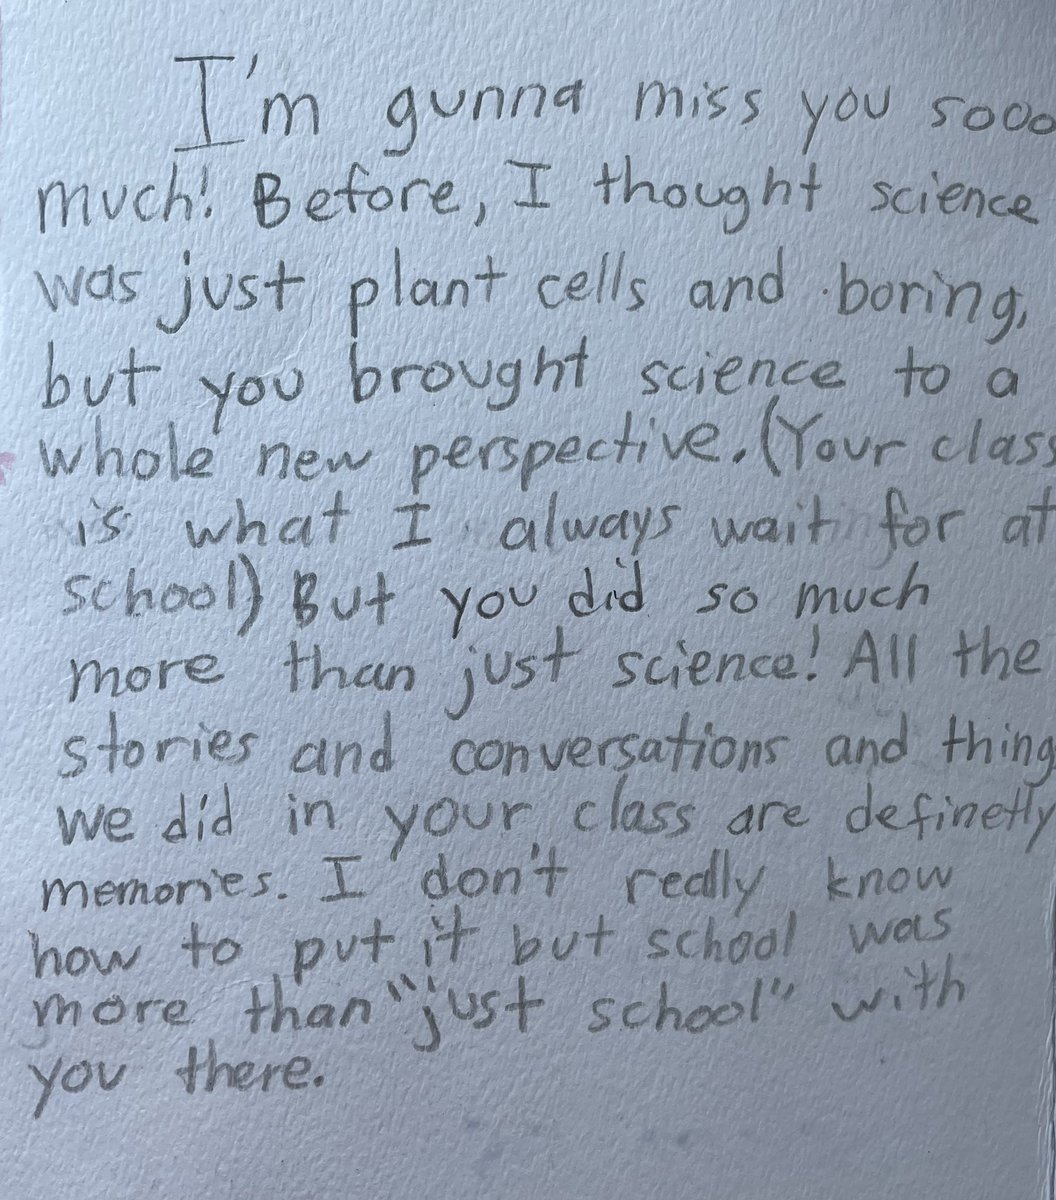 I'm gunna miss you sooo
much! Before, I thought science
was just plant cells and boring,
but you brought science to a
whole new perspective. (Your class
is what I always wait for at
school) But you did so much
more than just science! All the
stories and conversations and thing
we did in your class are definetly
memories. I don't really know
how to put it but school was
more than "just school" with
you there.